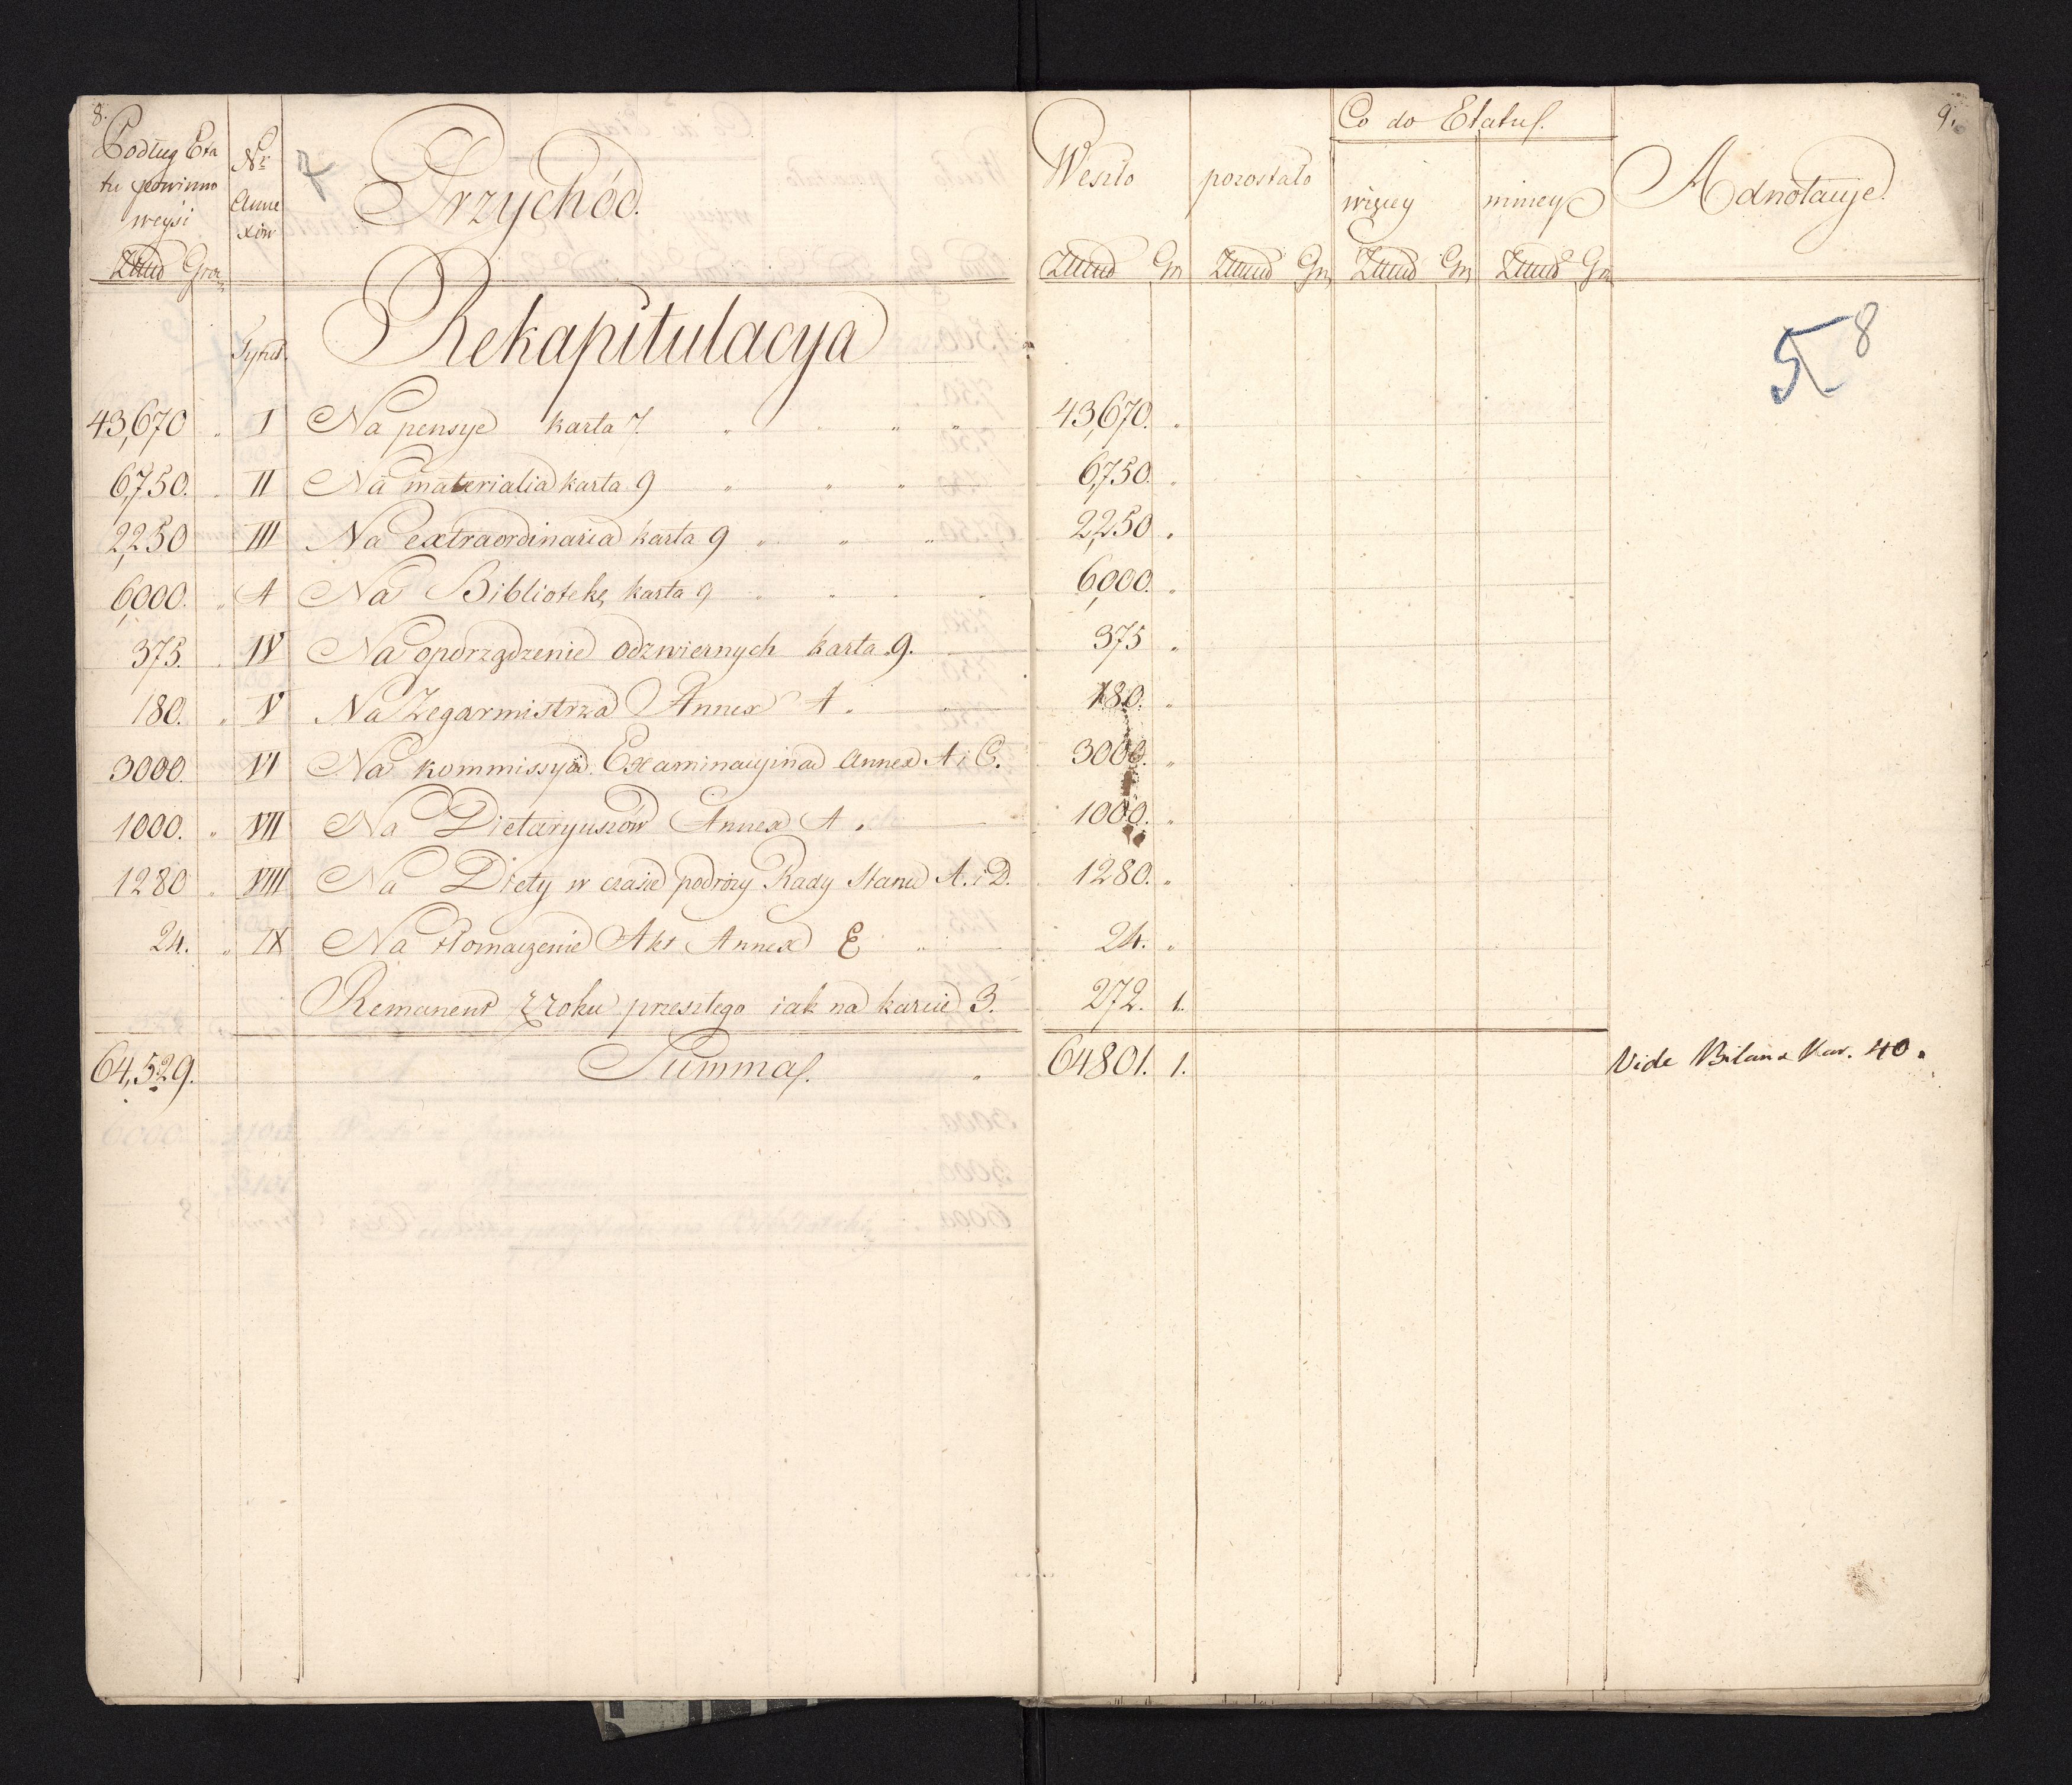 8.
Podług Eta
tu powinno
weyśi
Nr
Anne
xów
7
Przychód.
Weszło
pozostało
Co do Etatus.
więcey
mniey
Adnotacye.
9.
Gro
Gr
Gr
Gr
Gr
Tytuł.
Rekapitulacya
5 8
43,670 „ I Na pensye karta 7. „ „ „ 43,670. „
6,750. „ II Na materialia karta 9 „ „ „ 6,750. „
2,250 III Na extraordinaria karta 9 „ „ „ 2,250 „
6,000. „ A Na Bibliotekę karta 9 „ „ „ „ 6,000. „
375. „ IV Na oporządzenie odzwiernych karta 9. 375 „
180. „ V Na Zegarmistrza Annex A. „ 180. „
3000 „ VI Na kommissyią Examinacyiną Annex A i C. 3000. „
1000. „ VII Na Dietaryuszów Annex A. 1000. „
1280 „ VIII Na Diety w czasie podróży Rady Stanu A. i D. 1280. „
24. „ IX Na tłomaczenie Akt Annex E „ 24. „
Remanent z roku przeszłego iak na karcie 3. 272. 1.
64,529. Summas. „ 64801. 1. Vide Bilans Kar. 40.